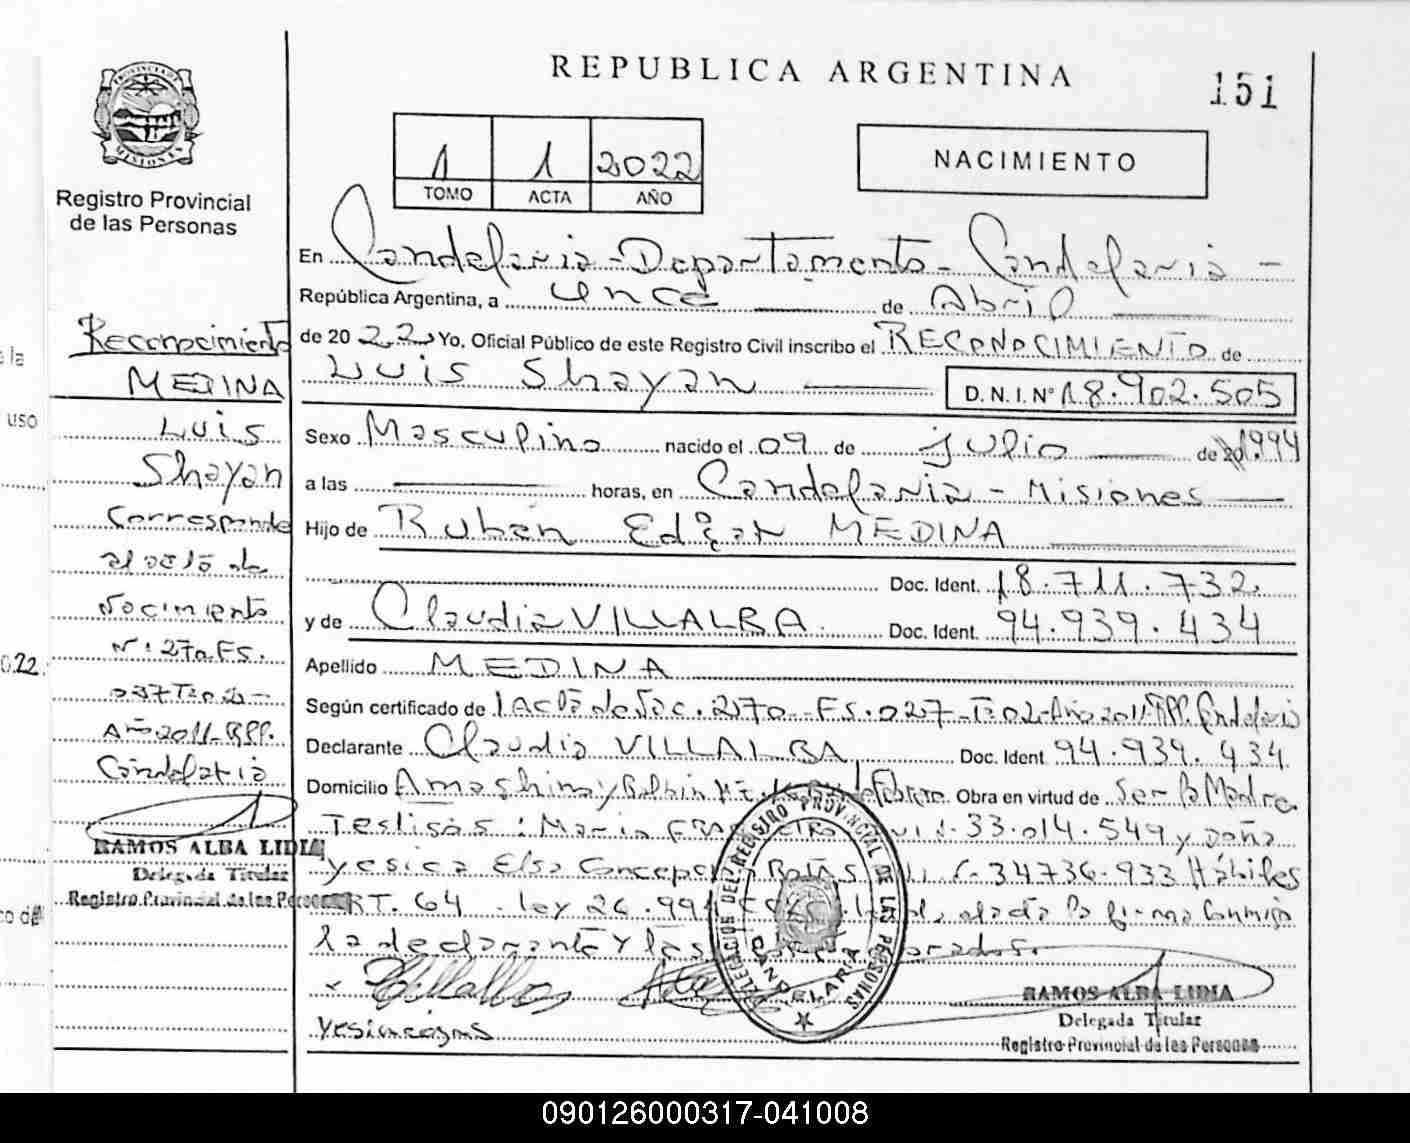 REPUBLICA ARGENTINA
151
PROVINCIA DE
MISIONES
Registro Provincial
de las Personas
1 1 2022
TOMO ACTA AÑO
NACIMIENTO
En Candelaria - Departamento - Candelaria -
República Argentina, a once de Abril
de 2022 Yo, Oficial Público de este Registro Civil inscribo el RECONOCIMIENTO de
Luis Shayan D. N. I. Nº 18.902.505
Sexo Masculino nacido el 09 de julio de 20 1994
a las horas, en Candelaria - Misiones
Hijo de Ruben Edgar MEDINA
Doc. Ident. 18.711.732.
y de Claudia VILLALBA Doc. Ident. 94.939.434
Apellido MEDINA
Según certificado de 1 Acta de Nac. 270 - Fs. 027 - T: 02 - Año 2011 RPP. Candelaria
Declarante Claudia VILLALBA Doc. Ident 94.939.434
Domicilio Obra en virtud de ser la Madre
Testigos: Maria 33.014.549 y Doña
yesica Elsa 34736.933 Hábiles
ART. 64 . ley 26.994 la firma Conmigo
la declarante y las
Yesica
RAMOS ALBA LIDIA
Delegada Titular
Registro Provincial de las Personas
DELEGACION DEL REGISTRO PROVINCIAL DE LAS PERSONAS
CANDELARIA
Reconocimiento
MEDINA
Luis
Shayan
Corresponde
al acta de
Nacimiento
Nº: 270 Fs.
Año 2011 - RPP.
Candelaria
RAMOS ALBA LIDIA
Delegada Titular
Registro Provincial de las Personas
la
uso
022
090126000317-041008